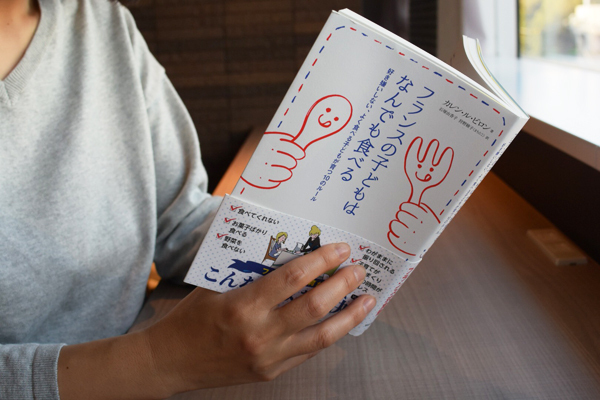 カレン・ル・ビロン
フランスの子どもは
なんでも食べる
好き嫌いしない、よく食べる子どもが育つ10のルール
食べてくれない
お菓子ばかり
食べる
野菜を
食べない
わがままに
振り回される
子育てが
こん